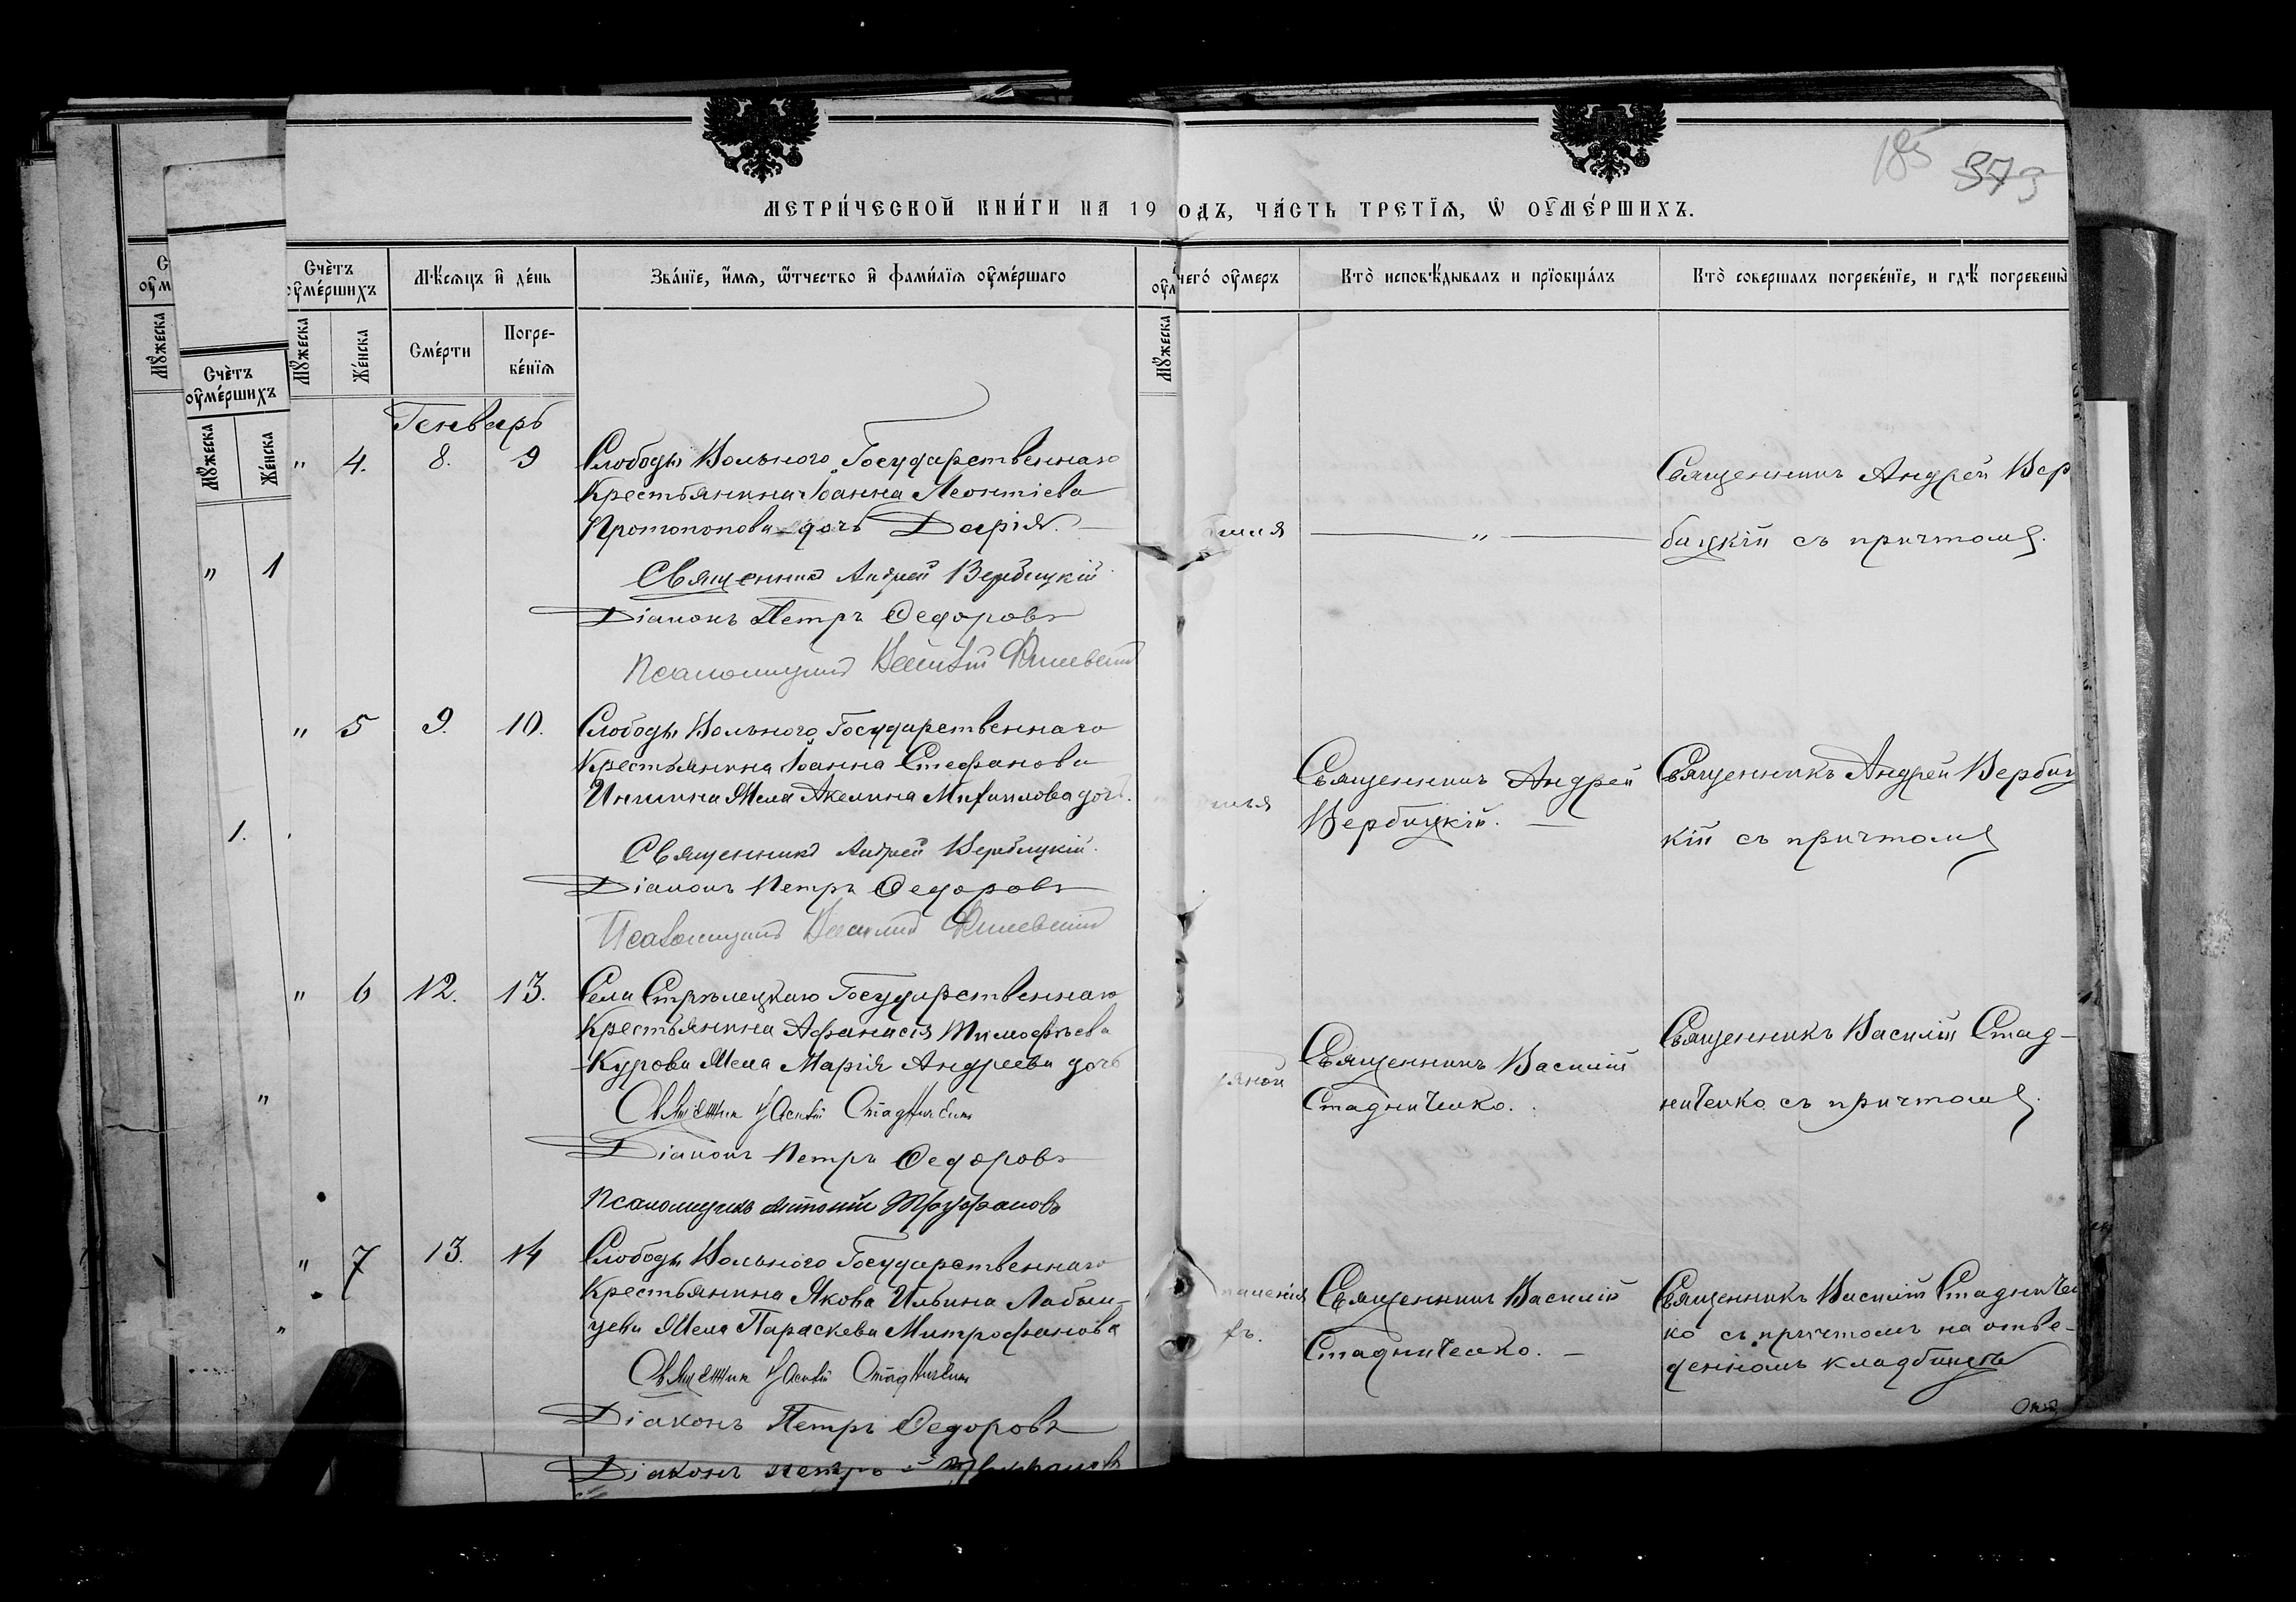 185 373
МЕТРИ́ЧЕСКОЙ КНИ́ГИ НА 19 ОДЪ, ЧА́СТЬ ТРЕ́ТІѦ, Ѡ҆ ОУ҆МЕ́РШИХЪ.
Счѐтъ оу҆ме́ршихъ
Мѣ́сяцъ и҆ де́нь
Зва́нїе, и҆́мѧ, ѻ҆́тчество и҆ фами́лїѧ оу҆ме́ршаго
чего́ оу҆меръ
Кто̀ исповѣ́дывалъ и прїобща́лъ
Кто̀ совершалъ погребе́нїе, и гдѣ́ погребены̀
Мꙋ́жеска
Же́нска
Сме́рти
Погре-
бе́нїѧ
Мꙋ́жеска
Мꙋ́жеска
Счѐтъ
оу҆ме́ршихъ
Мꙋ́жеска
Же́нска
" 1
1.
Генварь
" 4. 8. 9
Слободы Вольного Государственнаго
Крестьянина Іоанна Леонтіева
Протопопова дочь Дарія.
Священникъ Андрей Вербицкій
Діаконъ Петръ Федоровъ
Псаломщикъ
Священникъ Андрей Вер
бицкій съ причтомъ.
" 5 9. 10.
Слободы Вольного Государственнаго
Крестьянина Іоанна Стефанова
Жена Акелина Михаилова доч.
Священникъ Андрей Вербицкій.
Діаконъ Петръ Федоровъ
Псаломщикъ
Священникъ Андрей
Вербицкій.
Священникъ Андрей Вербиц
кій съ причтомъ
" 6 12. 13.
Села Стрѣлецкаго Государственнаго
Крестьянина Афанасія Тимофѣева
Курова Жена Марія Андреева дочь
Священник Василій Стадниченко
Діаконъ Петръ Федоровъ
Псаломщикъ Антоній Труфановъ
Священникъ Василій
Стадниченко.
Священникъ Василій Стад-
ниченко съ причтомъ.
" 7 13. 14
Слободы Вольного Государственнаго
Крестьянина Якова Ильина Лабын-
цева Жена Параскева Митрофанова
Священник Василій Стадниченко
Діаконъ Петръ Федоровъ
Діаконъ Петръ
Священникъ Василій
Стадниченко.
Священникъ Василій Стадничен
ко съ причтомъ на отве-
денномъ кладбищѣ